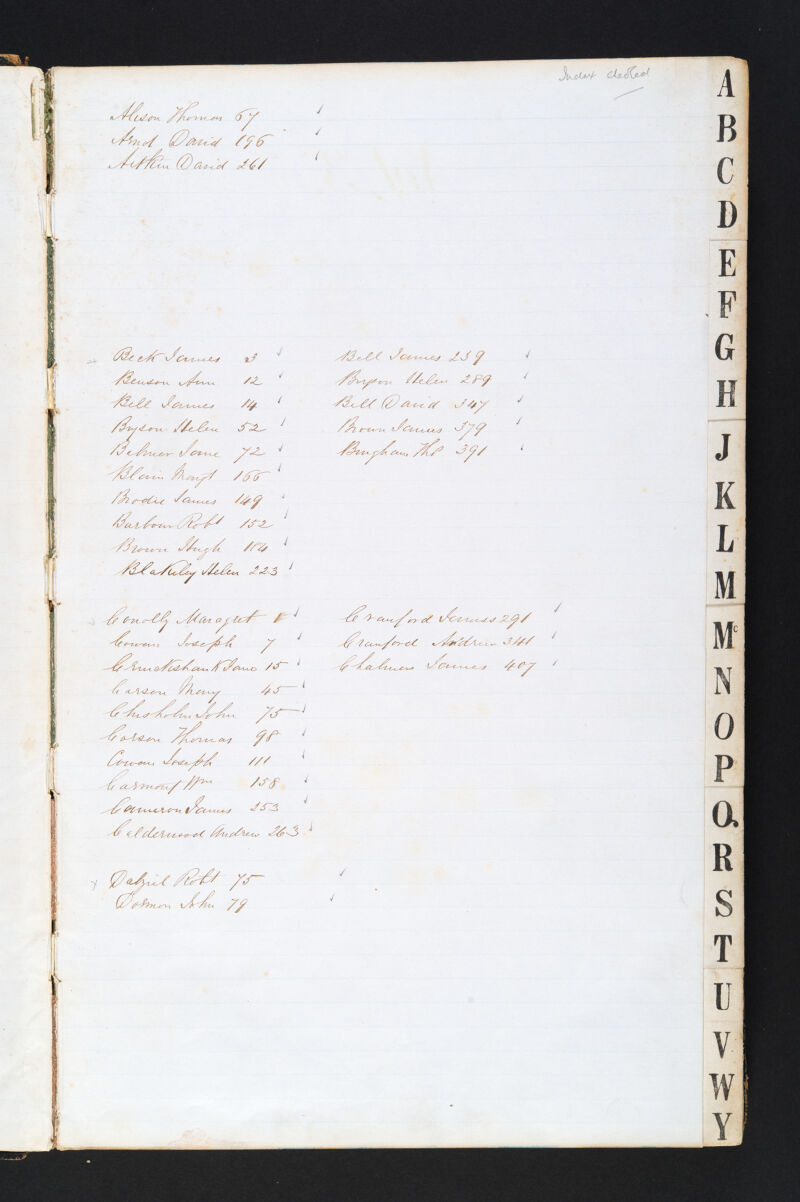 Index checked
Alison Thomas 67
Arnot David 196
Aitken David 261
Beck James 3
Benson Ann 12
Bell James 14
Bryson Helen 52
Jane 72
Blain Margt 166
Brodie James 149
Barbour Robt 152
Brown Hugh 184
Blakeley Helen 223
Bell James 239
Bryson Helen 289
Bell David 347
Brown James 379
Bingham Ths 391
Conolly Maragret 1
Cowan Joseph 7
Cruickshank Jane 15
Carson Mary 45
Chisholm John 75
Carson Thomas 98
Cowan Joseph 111
Carmont Wm 158
Cameron James 253
Calderwood Andrew 263
Crauford James 291
Crauford Andrew 341
Chalmers James 407
Dalziel Robt 75
Dorman John 79
A
B
C
D
E
F
G
H
J
K
L
M
Mc
N
O
P
Q
R
S
T
U
V
W
Y